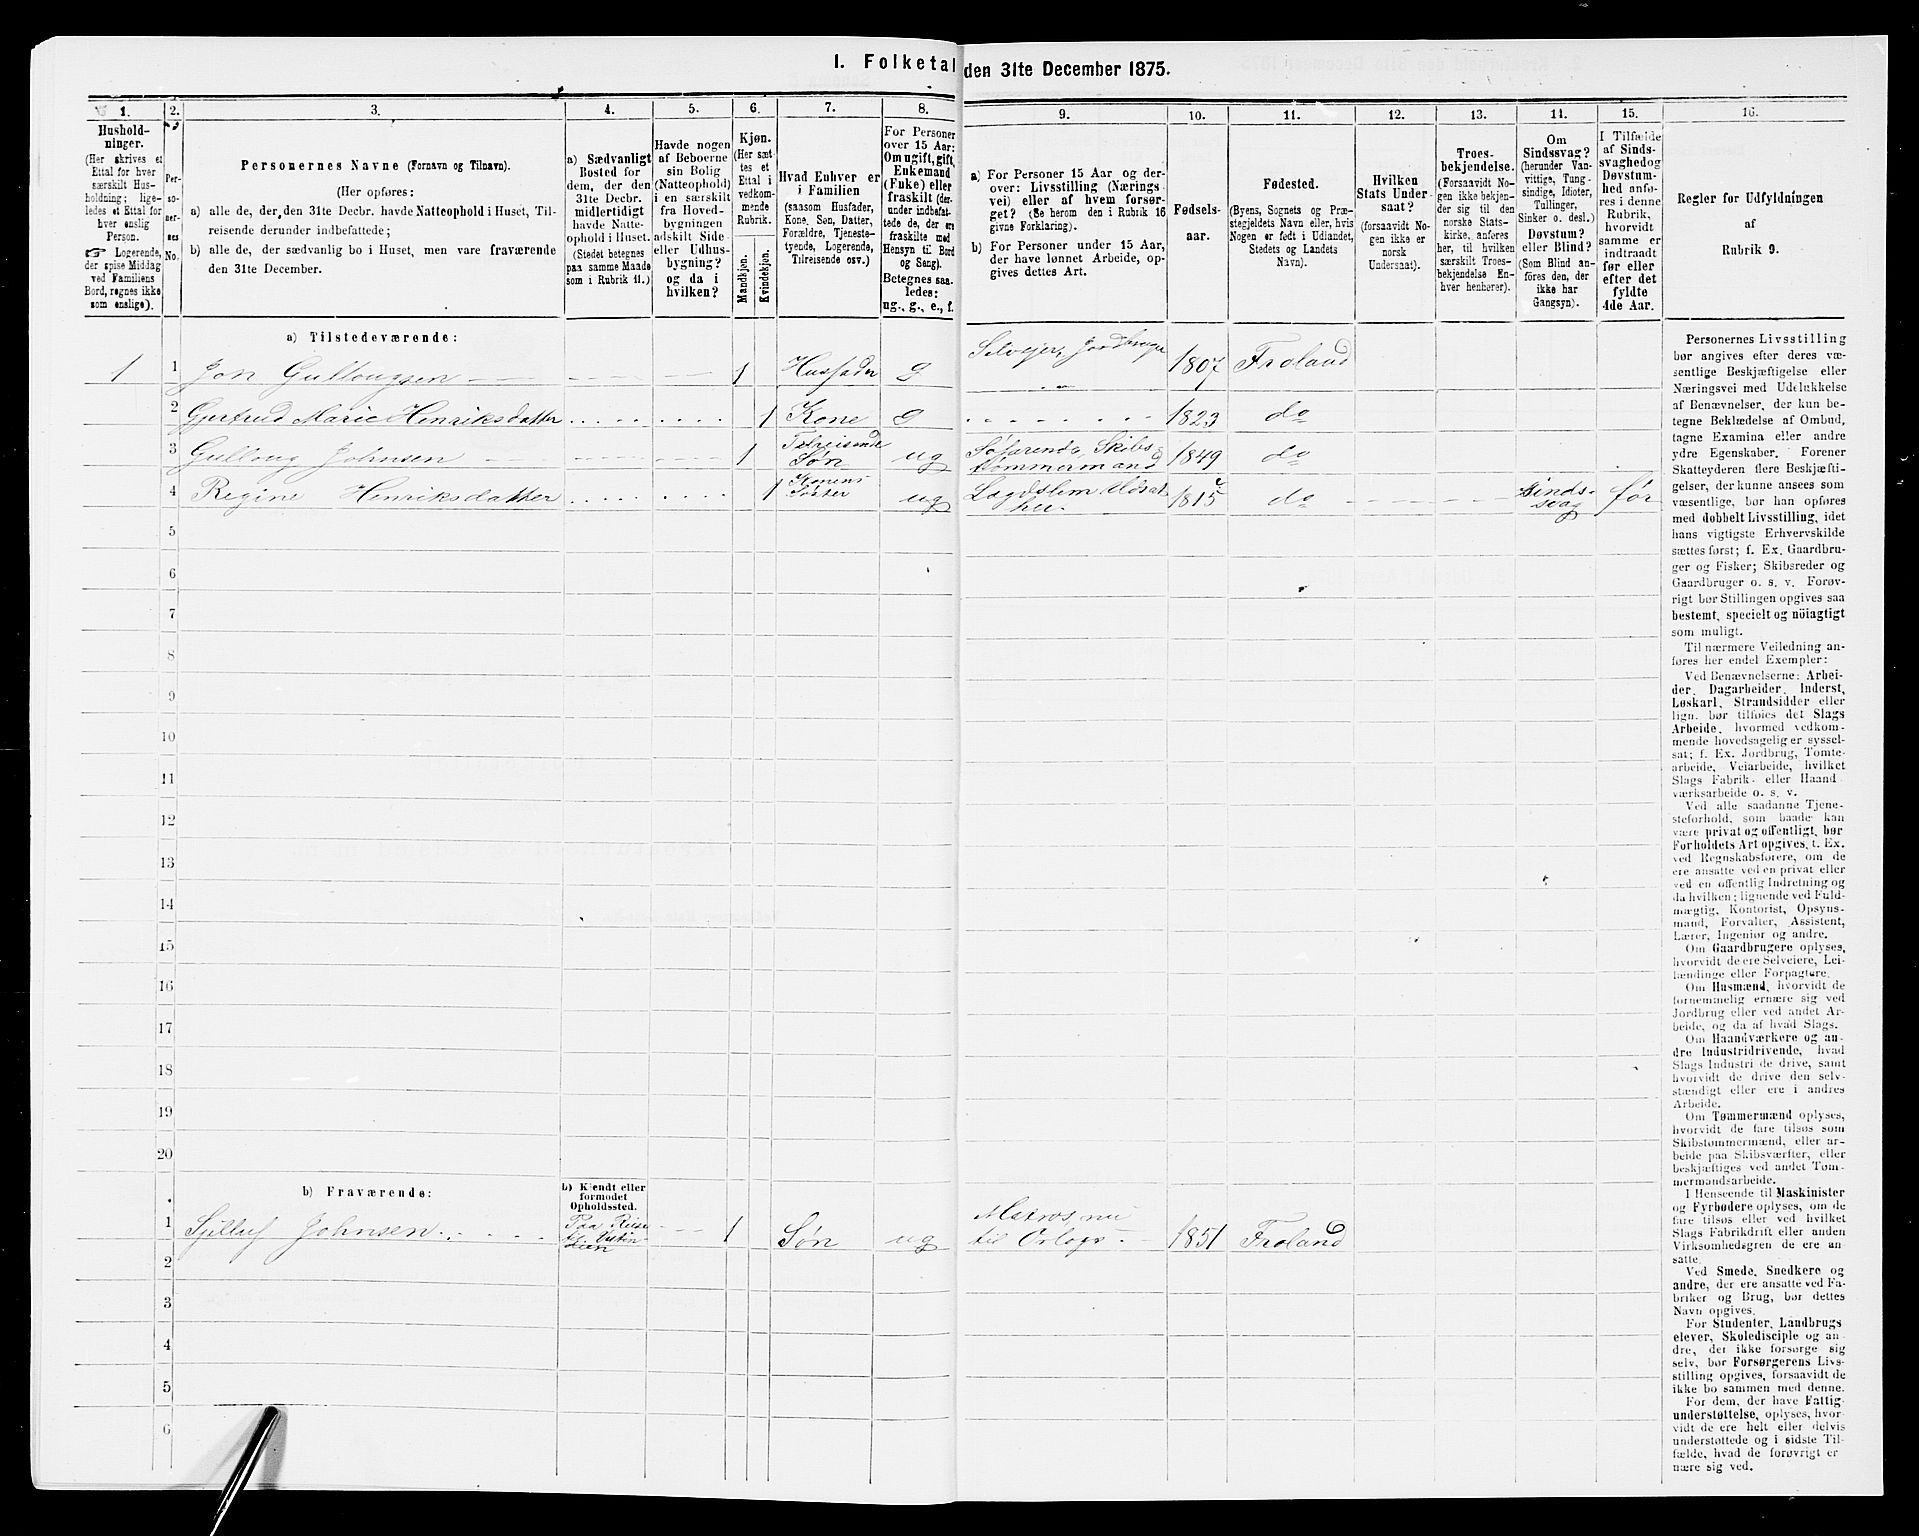 1. Folketal den 31te December 1875.
1. 2. 3. 4. 5. 6. 7. 8. 9. 10. 11. 12. 13. 14. 15. 16.
Hushold-
ninger.
(Her skrives et
Ettal for hver
særskilt Hus-
holdning; lige-
ledes et Ettal for
hver enslig
Person.
☞ Logerende,
der spise Middag
ved Familiens
Bord, regnes ikke
som enslige).
Per-
so-
ner-
nes
No.
Personernes Navne (Fornavn og Tilnavn).
(Her opføres:
a) alle de, der, den 31te Decbr. havde Natteophold i Huset, Til-
reisende derunder indbefattede;
b) alle de, der sædvanlig bo i Huset, men vare fraværende
den 31te December.
a) Sædvanligt
Bosted for
dem, der den
31te Decbr.
midlertidigt
havde Natte-
ophold i Huset.
(Stedet betegnes
paa samme Maade
som i Rubrik 11.)
Havde nogen
af Beboerne
sin Bolig
(Natteophold)
i en særskilt
fra Hoved-
bygningen
adskilt Side-
eller Udhus-
bygning?
og da i
hvilken?
Kjøn.
(Her sæt-
tes et
Ettal i
vedkom-
mende
Rubrik.
Mandkjøn.
Kvindekjøn.
Hvad Enhver er
i Familien
(saasom Husfader,
Kone, Søn, Datter,
Forældre, Tjeneste-
tyende, Logerende,
Tilreisende osv.)
For Personer
over 15 Aar:
Om ugift, gift,
Enkemand
(Enke) eller
fraskilt (der-
under indbefat-
tede de, der ere
fraskilte med
Hensyn til Bord
og Seng).
Betegnes saa-
ledes:
ug., g., e., f.
a) For Personer 15 Aar og der-
over: Livsstilling (Nærings-
vei) eller af hvem forsør-
get? (Se herom den i Rubrik 16
givne Forklaring).
b) For Personer under 15 Aar,
der have lønnet Arbeide, op-
gives dettes Art.
Fødsels-
aar.
Fødested.
(Byens, Sognets og Præ-
stegjeldets Navn eller, hvis
Nogen er født i Udlandet,
Stedets og Landets
Navn).
Hvilken
Stats Under-
saat?
(forsaavidt No-
gen ikke er
norsk
Undersaat).
Troes-
bekjendelse.
(Forsaavidt No-
gen ikke bekjen-
der sig til den
norske Stats-
kirke, anføres
her, til hvilken
særskilt Troes-
bekjendelse En-
hver henhører).
Om
Sindssvag?
(herunder Van-
vittige, Tung-
sindige, Idioter,
Tullinger,
Sinker o. desl.)
Døvstum?
eller Blind?
(Som Blind an-
føres den, der
ikke har
Gangsyn).
I Tilfælde
af Sinds-
svaghed og
Døvstum-
hed anfø-
res i denne
Rubrik,
hvorvidt
samme er
indtraadt
før eller
efter det
fyldte
4de Aar.
Regler for Udfyldningen
af
Rubrik 9.
a) Tilstedeværende:
1 1 Jon Gullougsen 1 Husfader g Selvejer, Jordbruger 1807 Froland
2 Gjertrud Marie Henriksdatter 1 Kone g 1823 do
3 Gulloug Johnsen 1 Tilreisende Søn ug Søfarende, Skibs-
tømmermand 1849 do
4 Regine Henriksdatter 1 Konens Søster ug 1815 do Sinds-
svag før
5
6
7
8
9
10
11
12
13
14
15
16
17
18
19
20
b) Fraværende:
b) Kjendt eller
formodet
Opholdssted.
1 Sjilluf Johnsen Paa Reise
til Ostin-
dien 1 Søn ug Matros, nu
til Orlogs 1851 Froland
2
3
4
5
6
Personernes Livsstilling
bør angives efter deres væ-
sentlige Beskjæftigelse eller
Næringsvei med Udelukkelse
af Benævnelser, der kun be-
tegne Beklædelse af Ombud,
tagne Examina eller andre
ydre Egenskaber. Forener
Skatteyderen flere Beskjæfti-
gelser, der kunne ansees som
væsentlige, bør han opføres
med dobbelt Livsstilling, idet
hans vigtigste Erhvervskilde
sættes først; f. Ex. Gaardbru-
ger og Fisker; Skibsreder og
Gaardbruger o. s. v. Forøv-
rigt bør Stillingen opgives saa
bestemt, specielt og nöiagtigt
som muligt.
Til nærmere Veiledning an-
føres her endel Exempler:
Ved Benævnelserne: Arbei-
der, Dagarbeider, Inderst,
Løskarl, Strandsidder eller
lign. bør tilføies det Slags
Arbeide, hvormed vedkom-
mende hovedsagelig er syssel-
sat; f. Ex. Jordbrug, Tomte-
arbeide, Veiarbeide, hvilket
Slags Fabrik- eller Haand-
værksarbeide o. s. v.
Ved alle saadanne Tjene-
steforhold, som baade kan
være privat og offentligt, bør
Forholdets Art opgives, t. Ex.
ved Regnskabsførere, om de
ere ansatte ved en privat eller
ved en offentlig Indretning og
da hvilken; lignende ved Fuld-
mægtig, Kontorist, Opsyns-
mand, Forvalter, Assistent,
Lærer, Ingeniør og andre.
Om Gaardbrugere oplyses,
hvorvidt de ere Selveiere, Lei-
lændinge eller Forpagtere.
Om Husmænd, hvorvidt de
fornemmelig ernære sig ved
Jordbrug eller ved andet Ar-
beide, og da af hvad Slags.
Om Haandværkere og an-
dre Industridrivende, hvad
Slags Industri de drive, samt
hvorvidt de drive den selv-
stændigt eller ere i andres
Arbeide.
Om Tømmermænd oplyses,
hvorvidt de fare tilsøs som
Skibstømmermænd, eller ar-
beide paa Skibsværfter, eller
beskjæftiges ved andet Tøm-
mermandsarbeide.
I Henseende til Maskinister
og Fyrbødere oplyses, om de
fare tilsøs eller ved hvilket
Slags Fabrikdrift eller anden
Virksomhedsgren de ere an-
satte.
Ved Smede, Snedkere og
andre, der ere ansatte ved Fa-
briker og Brug, bør dettes
Navn opgives.
For Studenter, Landbrugs-
elever, Skoledisciple og an-
dre, der ikke forsørge sig
selv, bør Forsørgerens Livs-
stilling opgives, forsaavidt de
ikke bo sammen med denne.
For dem, der have Fattig-
understøttelse, oplyses, hvor-
vidt de ere helt eller delvis
understøttede og i sidste Til-
fælde, hvad de forøvrigt er-
nære sig ved.